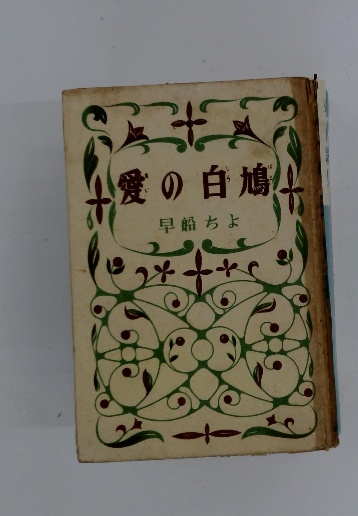 愛の白鳩
早船ちよ